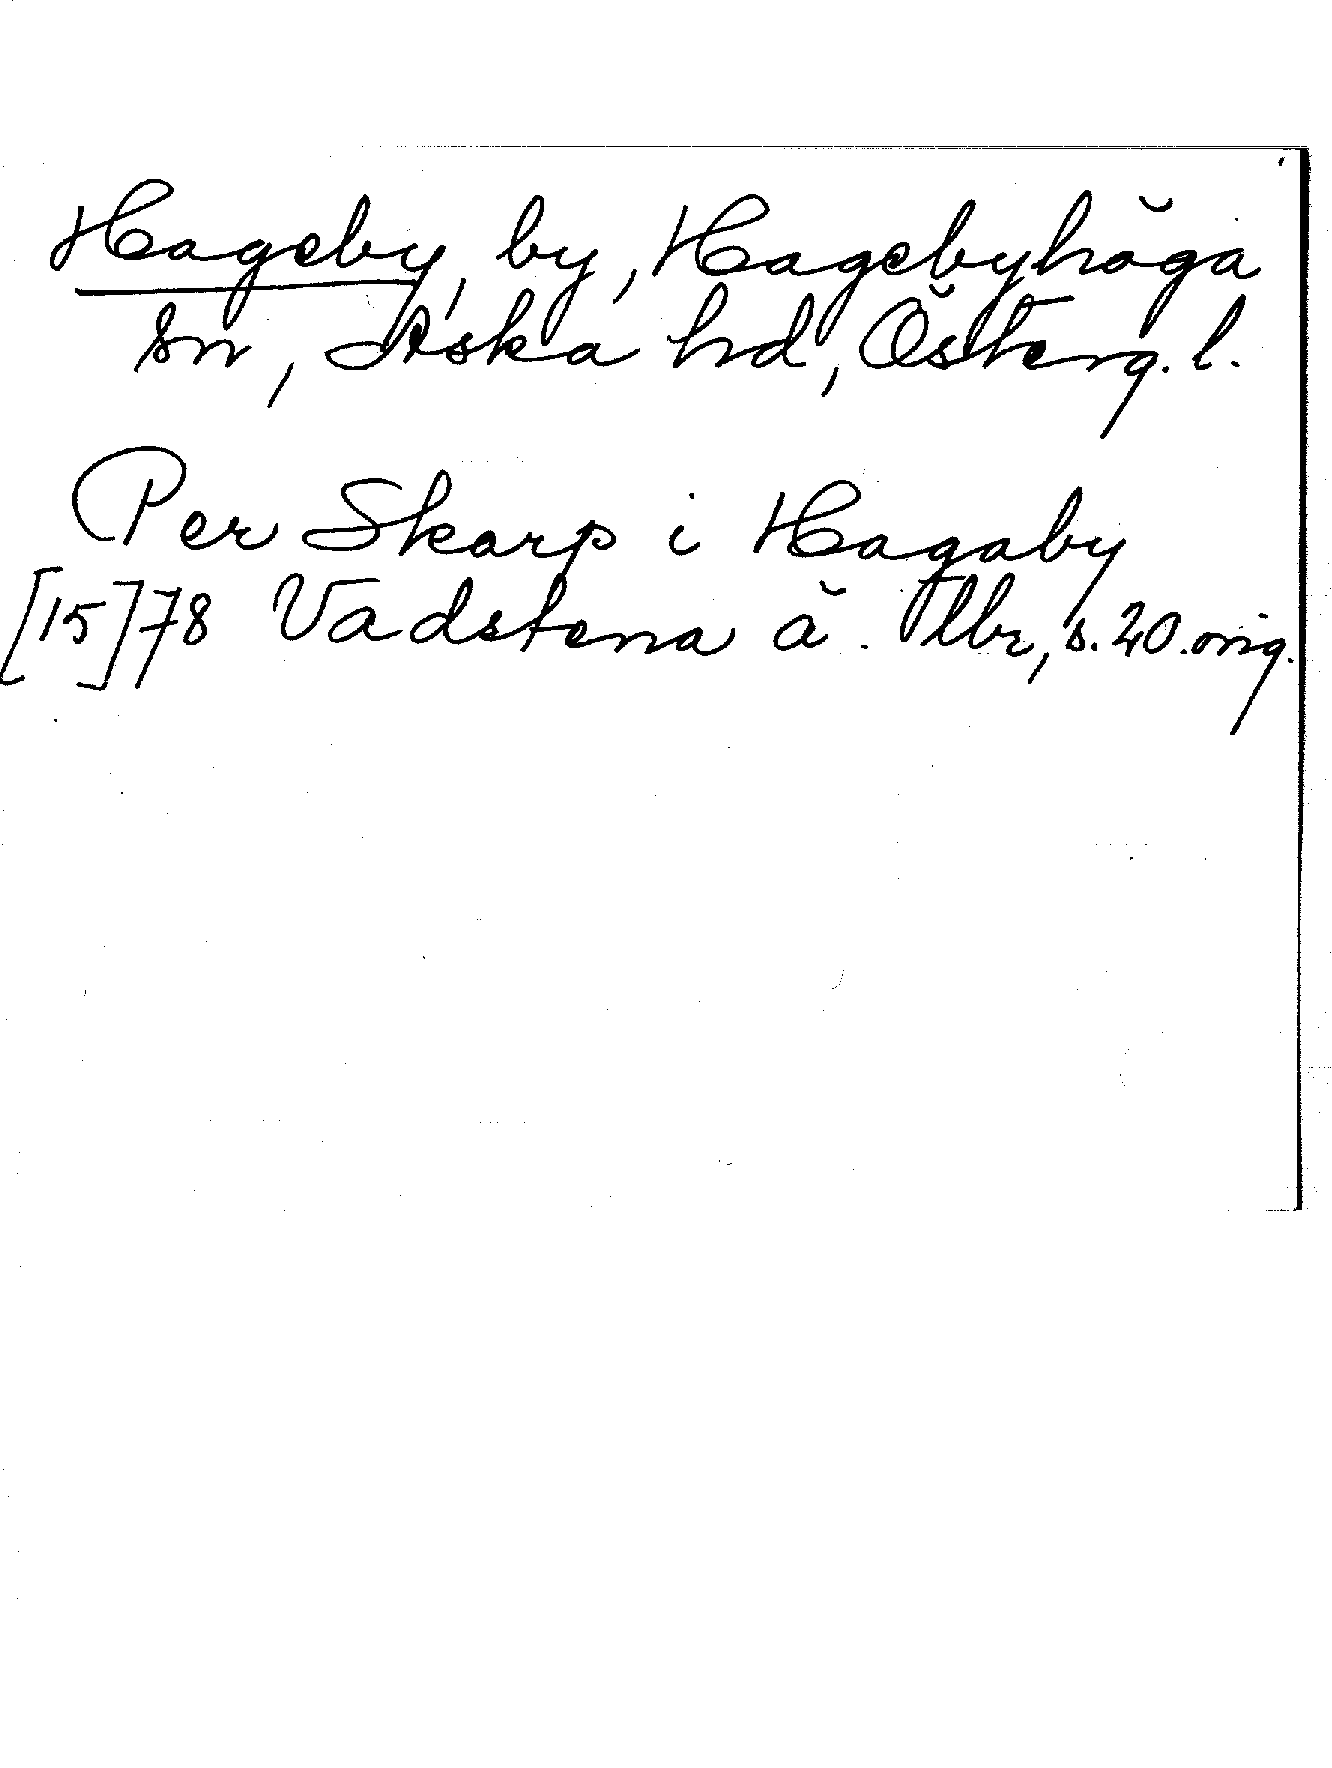 Hageby, by, Hagebyhöga
sn, Aska hd, Österg. l.
Per Skarp i Hagaby
[15]78 Vadstena ä. Tbr, s. 20. orig.